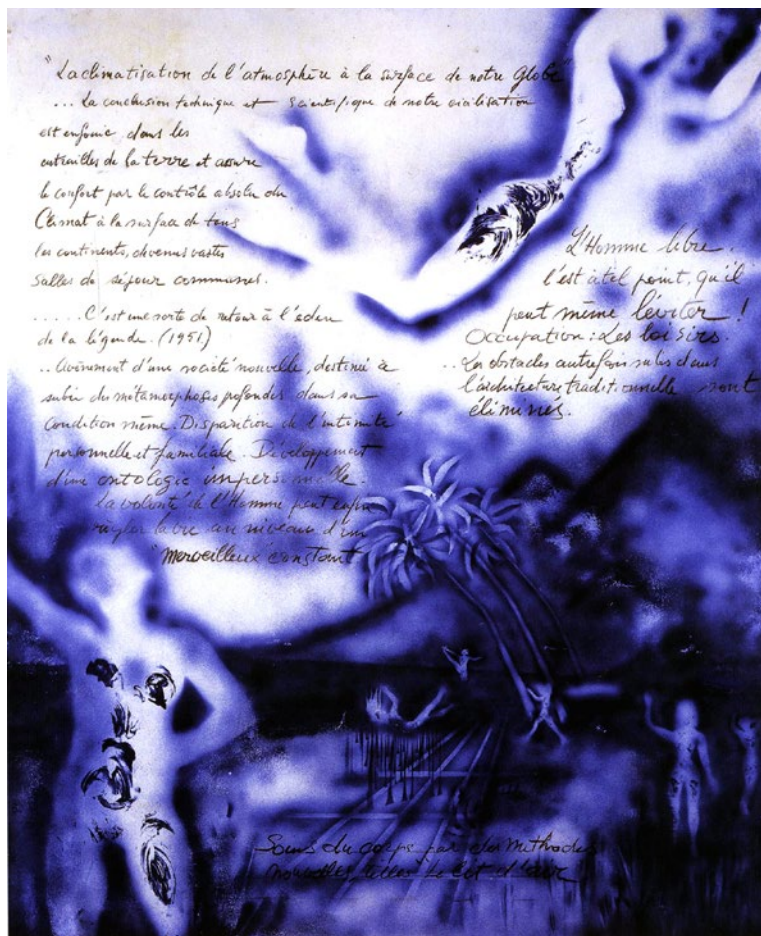 "La climatisation de l'atmosphère à la surface de notre Globe"
... La conclusion technique et scientifique de notre civilisation
est enfouie dans les
entrailles de la terre et assure
le confort par le contrôle absolu du
Climat à la surface de tous
les continents, devenus vastes
salles de séjour communes.
..... C'est une sorte de retour à l'eden
de la légende. (1951)
.. Avènement d'une société nouvelle, destinée à
subir des métamorphoses profondes dans sa
condition même. Disparition de l'intimité
personnelle et familiale. Développement
d'une ontologie impersonnelle.
La volonté de l'Homme peut enfin
régler la vie au niveau d'un
"Merveilleux constant
L'Homme libre.
l'est à tel point, qu'il
peut même léviter !
Occupation : Les loisirs.
.. Les obstacles autrefois subis dans
l'architecture traditionnelle sont
éliminés.
Soins du corps par des méthodes
nouvelles, telles le lit d'air